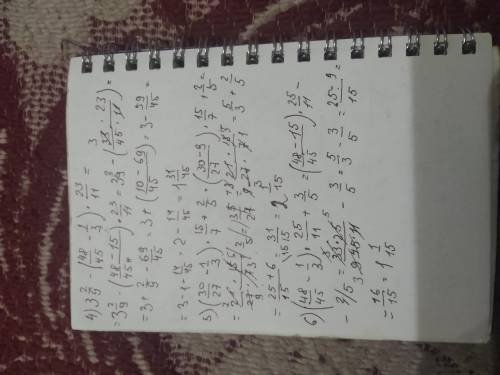 4) 3 2/9 - (48/45 - 1/3) · 23/11 =
= 3 2/9 - (48-15/45) · 23/11 = 3 2/9 - (33/45 · 23/11) =
= 3 + 2/9 - 69/45 = 3 + (10-69/45) = 3 - 59/45 =
= 3 - 1 - 14/45 = 2 - 14/45 = 1 31/45
5) (30/27 - 1/3) · 15/7 + 2/5 = (30-9/27) · 15/7 + 2/5 =
= 5/3 + 2/5 =
= 25+6/15 = 31/15 = 2 1/15
6) (48/45 - 1/3) · 25/11 - 3/5 = (48-15/45) · 25/11 -
- 3/5 = 33·25/45·11 - 3/5 = 5/3 - 3/5 = 25-9/15 =
= 16/15 = 1 1/15